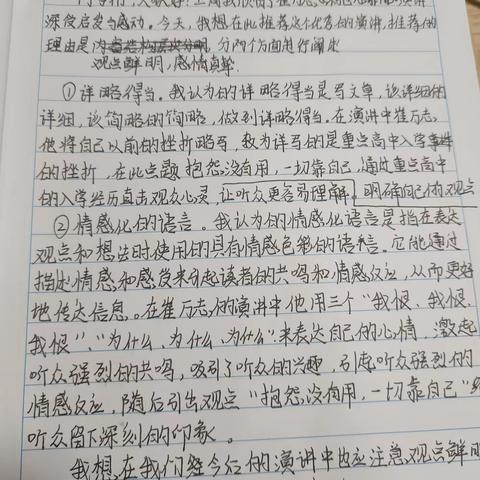 深受启发与感动。今天，我想在此推荐这个优秀的演讲，推荐的
理由是内容结构层次分明，分两个方面进行阐述
观点鲜明，感情真挚
①详略得当。我认为的详略得当是写文章，该详细的
详细，该简略的简略，做到详略得当。在演讲中崔万志
他将自己以前的挫折略写，较为详写的是重点高中入学
的挫折，在此点题抱怨没有用，一切靠自己，通过重点高中
的入学经历直击观众心灵，让听众更容易理解，明确自己的观点
②情感化的语言。我认为的情感化语言是指在表达
观点和想法时使用的具有情感色彩的语言。它能通过
描述情感和感受来引起读者的共鸣和情感反应，从而更好
地传达信息。在崔万志的演讲中他用三个“我恨、我恨、
我恨”、“为什么、为什么、为什么”来表达自己的心情，激起
听众强烈的共鸣，吸引了听众的兴趣，引起听众强烈的
情感反应，随后引出观点“抱怨没有用，一切靠自己”
听众留下深刻的印象。
我想，在我们经今后的演讲中也应注意观点鲜明